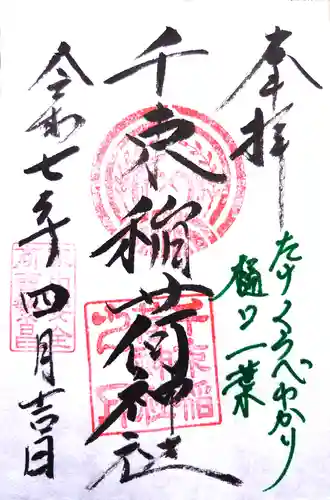 奉拝
たけくらべゆかり
樋口一葉
千束稲荷神社
令和七年
四月吉日